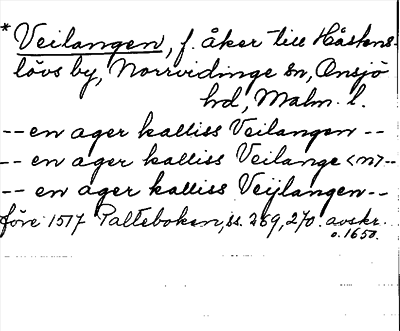 * Veilangen, f. åker till Håstens-
lövs by, Norrvidinge sn, Onsjö
hd, Malm. l.
-- en ager kalliss Veilangen --
-- en ager kalliss Veilange<n>--
-- en ager kalliss Veijlangen--
före 1517 Palteboken, ss. 269, 270. avskr.
o. 1650.